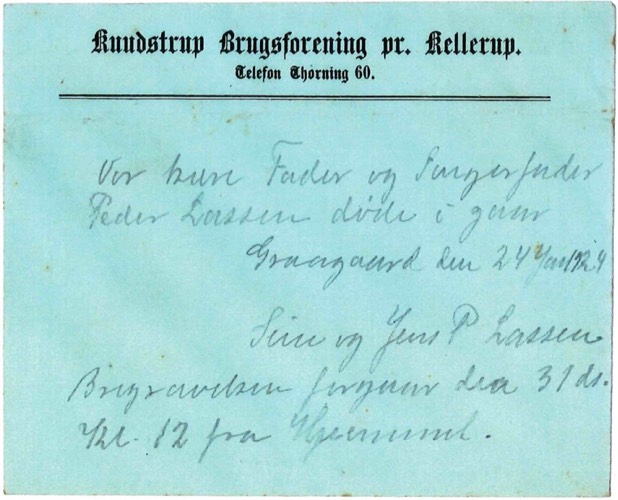 Knudstrup Brugsforening pr. Kellerup.
Telefon Thorning 60.
Vor kære Fader og Svigerfader
Peder Lassen døde i gaar
Graagaard den 24 Jan 1924
Sine og Jens P Lassen
Begravelsen forgaar den 31 ds.
Kl. 12 fra Hjemmet.